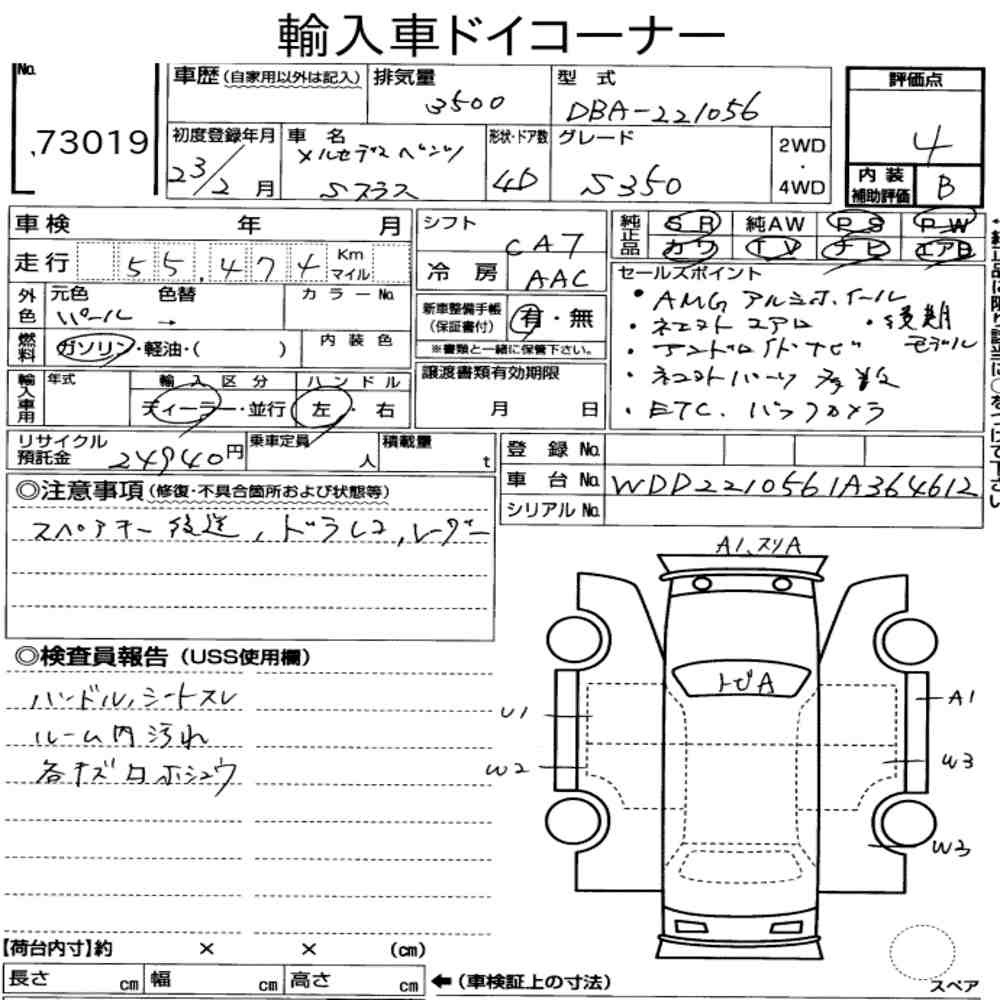 輸入車ドイコーナー
No.
73019
車歴(自家用以外は記入)
排気量
3500
型式
DBA-221056
初度登録年月
23/2月
車名
メルセデスベンツ
Sクラス
形状・ドア数
4D
グレード
S350
2WD
・
4WD
評価点
4
内装
補助評価
B
車検 年 月
走行 55,474 Km
マイル
外色
元色 色替
パール →
カラーNo.
燃料
ガソリン・軽油・( )
内装色
輸入車用
年式
輸入区分
ディーラー・並行
ハンドル
左・右
シフト
CA7
冷房
AAC
新車整備手帳
(保証書付)
有・無
※書類と一緒に保管下さい。
譲渡書類有効期限
月 日
純正品
SR 純AW PS PW
カワ TV ナビ エアB
セールスポイント
・AMGアルミホイール
・ネコストエアロ ・後期
・アンドロイドナビ モデル
・ネコストパーツ多数
・ETC.バックカメラ
リサイクル
預託金
24940円
乗車定員
人
積載量
t
登録No.
車台No. WDD2210561A364612
シリアルNo.
◎注意事項(修復・不具合箇所および状態等)
スペアキー後送,ドラレコ,レーダー
◎検査員報告(USS使用欄)
ハンドル、シートスレ
ルーム内汚れ
各キズロホシュウ
A1、スリA
トビA
U1
A1
W2
W3
W3
【荷台内寸】約 × × (cm)
長さ cm 幅 cm 高さ cm
←(車検証上の寸法)
スペア